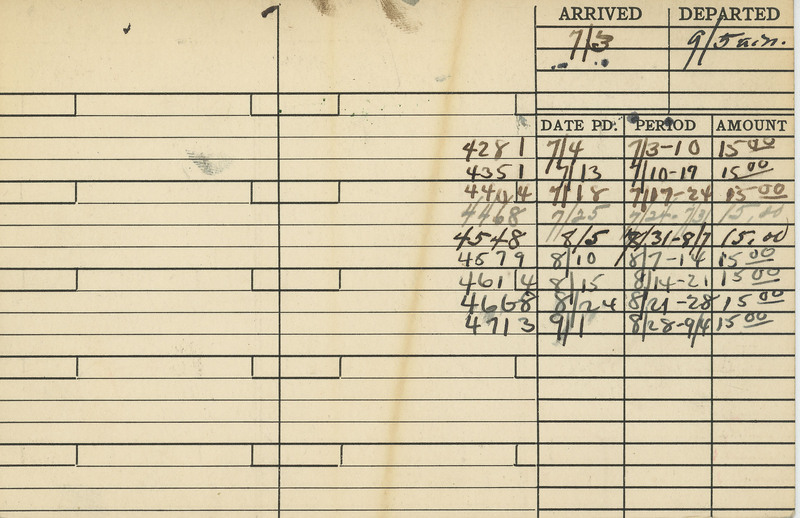 ARRIVED DEPARTED
7/3 9/5 a.m.
DATE PD. PERIOD AMOUNT
4281 7/4 7/3-10 15 00
4351 7/13 7/10-17 15 00
4404 7/18 7/17-24 15 00
4468 7/25 7/24-7/31 15,00
4548 8/5 7/31-8/7 15.00
4579 8/10 8/7-14 15 00
4614 8/15 8/14-21 15 00
4668 8/24 8/21-28 15 00
4713 9/1 8/28-9/4 15 00